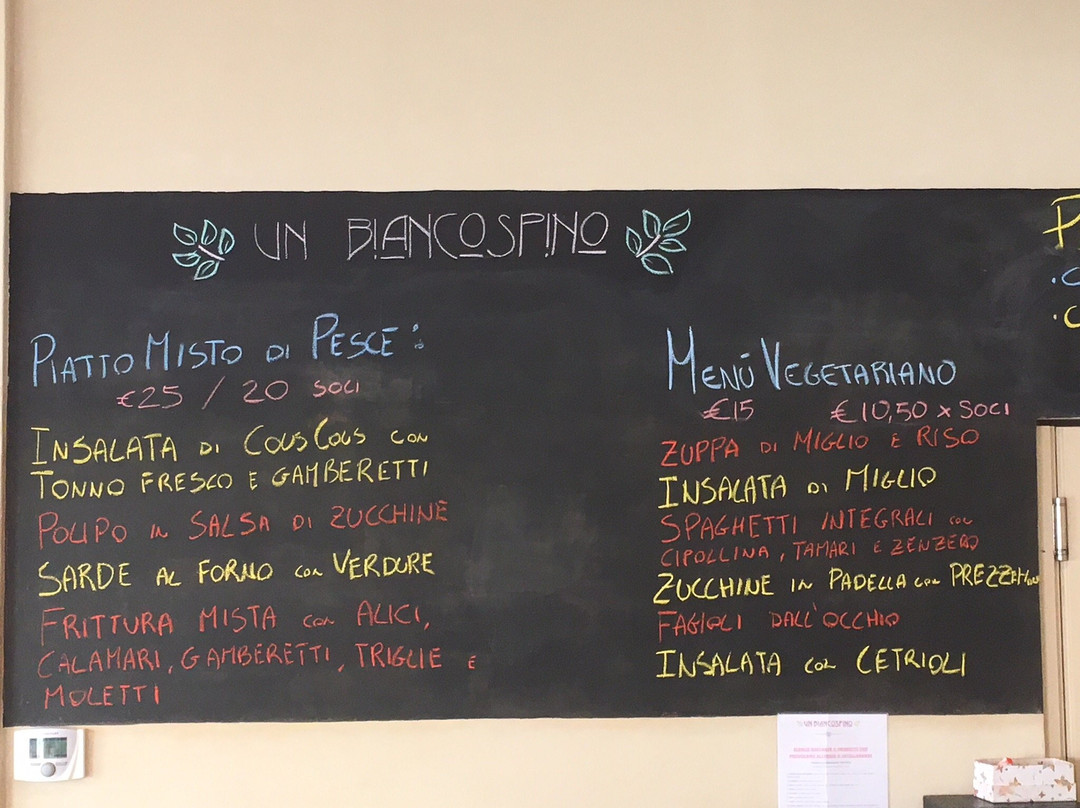 UN BIANCOSPINO
PIATTO MISTO DI PESCE:
€25 / 20 SOCI
INSALATA DI COUS COUS CON
TONNO FRESCO E GAMBERETTI
POLIPO IN SALSA DI ZUCCHINE
SARDE AL FORNO CON VERDURE
FRITTURA MISTA CON ALICI,
CALAMARI, GAMBERETTI, TRIGLIE E
MOLETTI
MENÚ VEGETARIANO
€15 €10,50 x SOCI
ZUPPA DI MIGLIO E RISO
INSALATA DI MIGLIO
SPAGHETTI INTEGRALI CON
CIPOLLINA, TAMARI E ZENZERO
ZUCCHINE IN PADELLA CON
FAGIOLI DALL'OCCHIO
INSALATA CON CETRIOLI
UN BIANCOSPINO